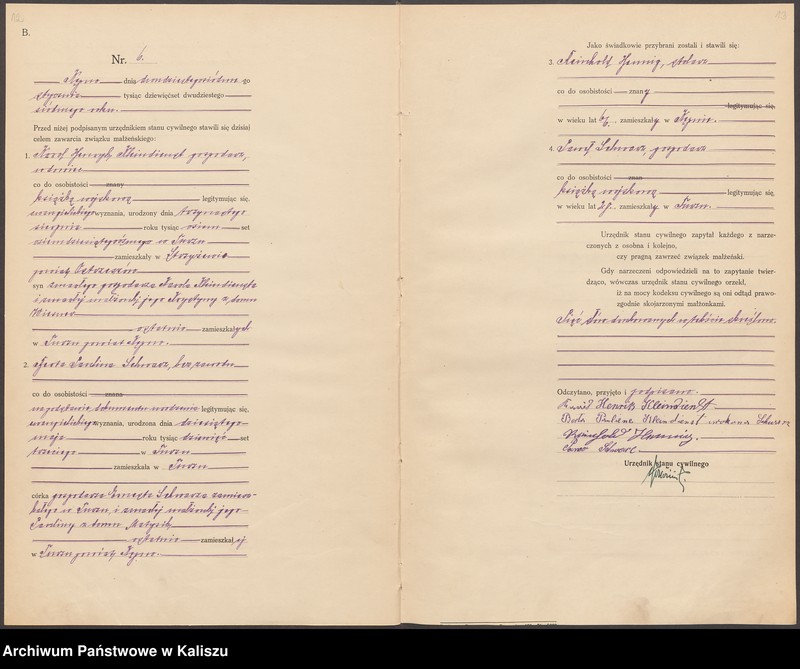 B.
Nr. 6.
dnia dwudziestegoósmego
stycznia tysiąc dziewięćset dwudziestego
siódmego roku.
Przed niżej podpisanym urzędnikiem stanu cywilnego stawili się dzisiaj
celem zawarcia związku małżeńskiego:
1. Henryk Kleindienst gospodarz,
wdowiec
co do osobistości znany
książką wojskową legitymując się,
ewangielickiego wyznania, urodzony dnia trzynastego
sierpnia roku tysiąc ośem set
w
zamieszkały w
powiat Ostrzeszów
syn zmarłego gospodarza Kleindiensta
i zmarłej małżonki jego Krystyny z domu
ostatnio zamieszkałych
w powiat Kępno.
2. Berta Paulina Schwarz, bez zawodu
co do osobistości znana
na podstawie dokumentu urodzenia legitymując się,
ewangielickiego wyznania, urodzona dnia dziesiątego
maja roku tysiąc dziewięć set
trzeciego w
zamieszkała w
córka gospodarza Ernesta Schwarza zamiesz-
kałego w i zmarłej małżonki jego
Pauliny z domu
ostatnio zamieszkałej
w powiat Kępno.
Jako świadkowie przybrani zostali i stawili się:
3. Reinhold Hennig, stolarz
co do osobistości znany
legitymując się,
w wieku lat zamieszkały w Kępnie.
4. Paweł Schwarz, gospodarz
co do osobistości znan
książką wojskową legitymując się,
w wieku lat zamieszkały w
Urzędnik stanu cywilnego zapytał każdego z narze-
czonych z osobna i kolejno,
czy pragną zawrzeć związek małżeński.
Gdy narzeczeni odpowiedzieli na to zapytanie twier-
dząco, wówczas urzędnik stanu cywilnego orzekł,
iż na mocy kodeksu cywilnego są oni odtąd prawo-
zgodnie skojarzonymi małżonkami.
Pięć słów drukowanych w tekście skreślono.
Odczytano, przyjęto i podpisano.
Henrik Kleindienst
Berta Paulina Kleindienst Schwarz
Reinhold Hennig
Schwarz
Urzędnik stanu cywilnego
Archiwum Państwowe w Kaliszu